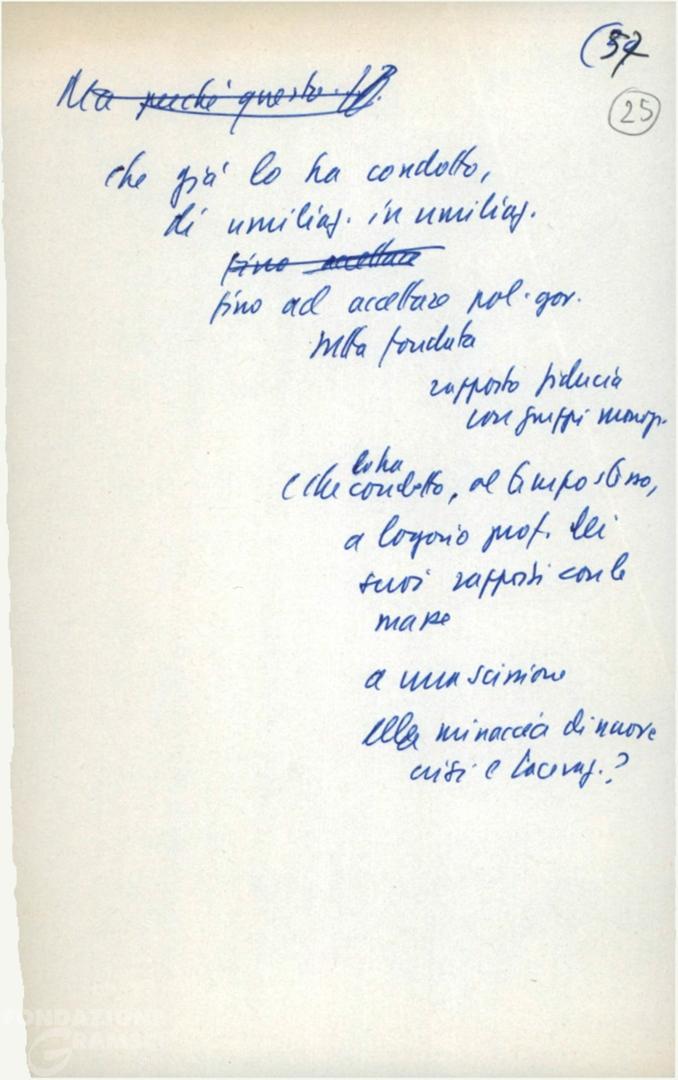 (57
25
Ma perché questo
che già lo ha condotto,
di umiliaz. in umiliaz.
fino accettare
fino ad accettare pol. gov.
tutta fondata
rapporto fiducia
con gruppi monop.
lo ha
e che condotto, al tempo stesso,
a logorio prof. dei
suoi rapporti con le
masse
a una scissione
alla minaccia di nuove
crisi e laceraz.?
FONDAZIONE
GRAMSCI